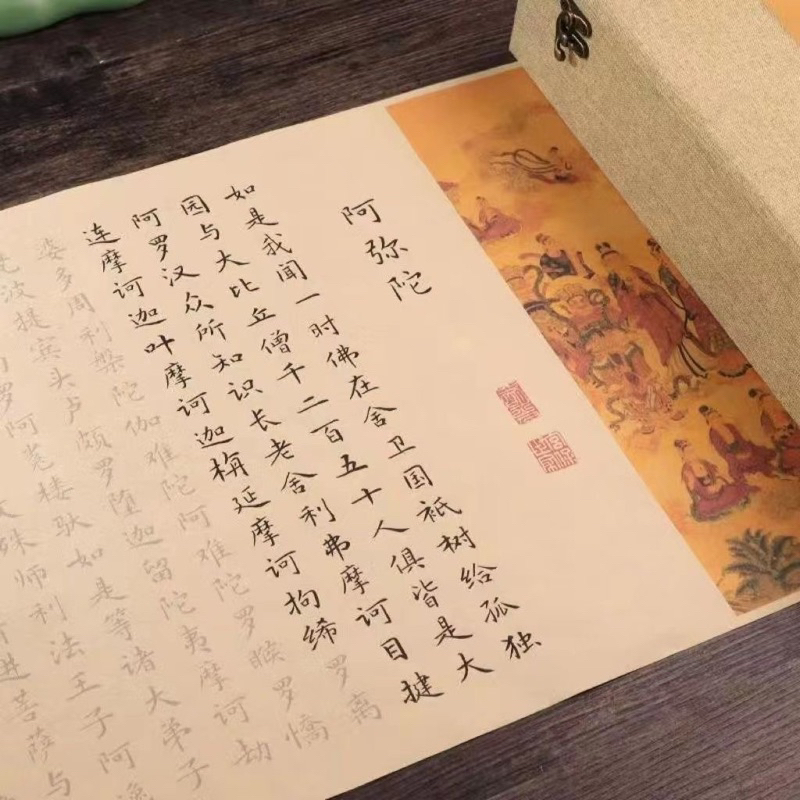 阿弥陀
如是我闻一时佛在舍卫国祇树给孤独
园与大比丘僧千二百五十人俱皆是大
阿罗汉众所知识长老舍利弗摩诃目犍
连摩诃迦叶摩诃迦栴延摩诃拘𫄨罗离
婆多周利槃陀伽难陀阿难陀罗睺罗憍
梵波提宾头卢颇罗堕迦留陀夷摩诃劫
罗阿㝹楼驮如是等诸大弟子
殊师利法王子阿逸
进菩萨与